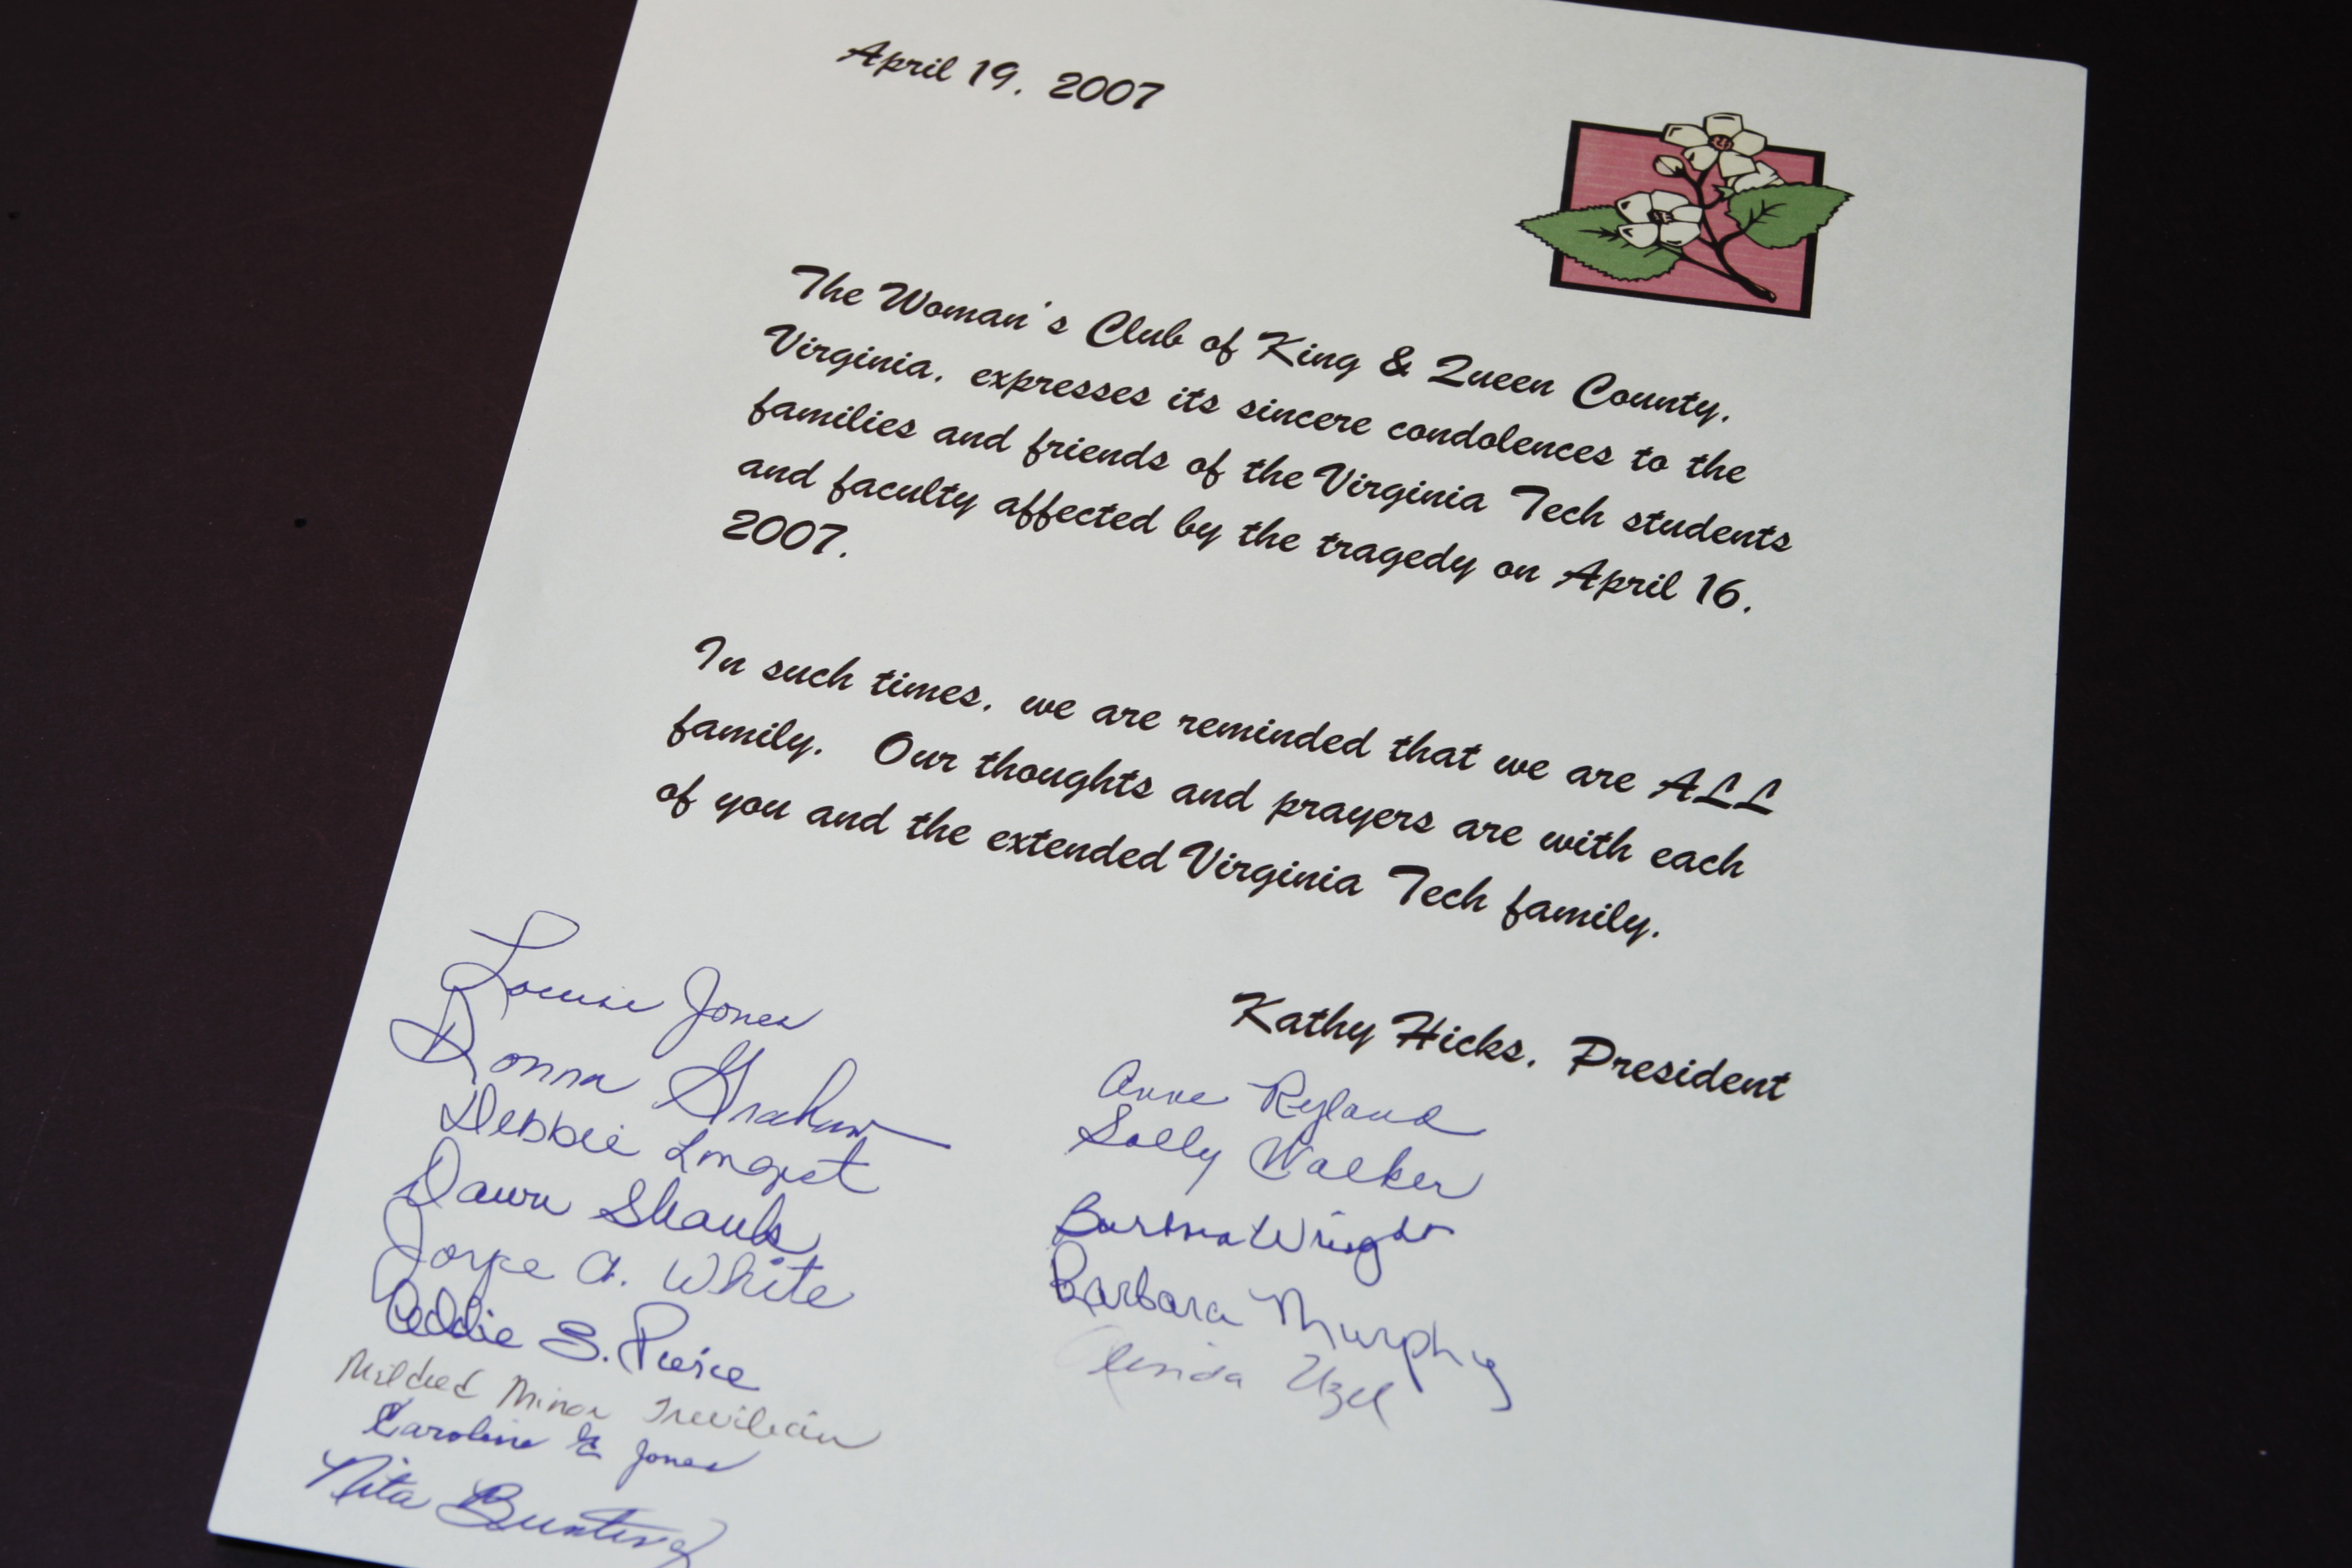 April 19, 2007
The Woman's Club of King & Queen County,
Virginia, expresses its sincere condolences to the
families and friends of the Virginia Tech students
and faculty affected by the tragedy on April 16,
2007.
In such times, we are reminded that we are ALL
family. Our thoughts and prayers are with each
of you and the extended Virginia Tech family.
Kathy Hicks, President
Louise Jones
Donna Graham
Debbie Longest
Dawn Shank
Joyce A. White
Addie S. Pierce
Mildred Minor Trevilian
Caroline Jones
Nita Bunting
Anne Ryland
Sally Walker
Barbara Wright
Barbara Murphy
Uzel